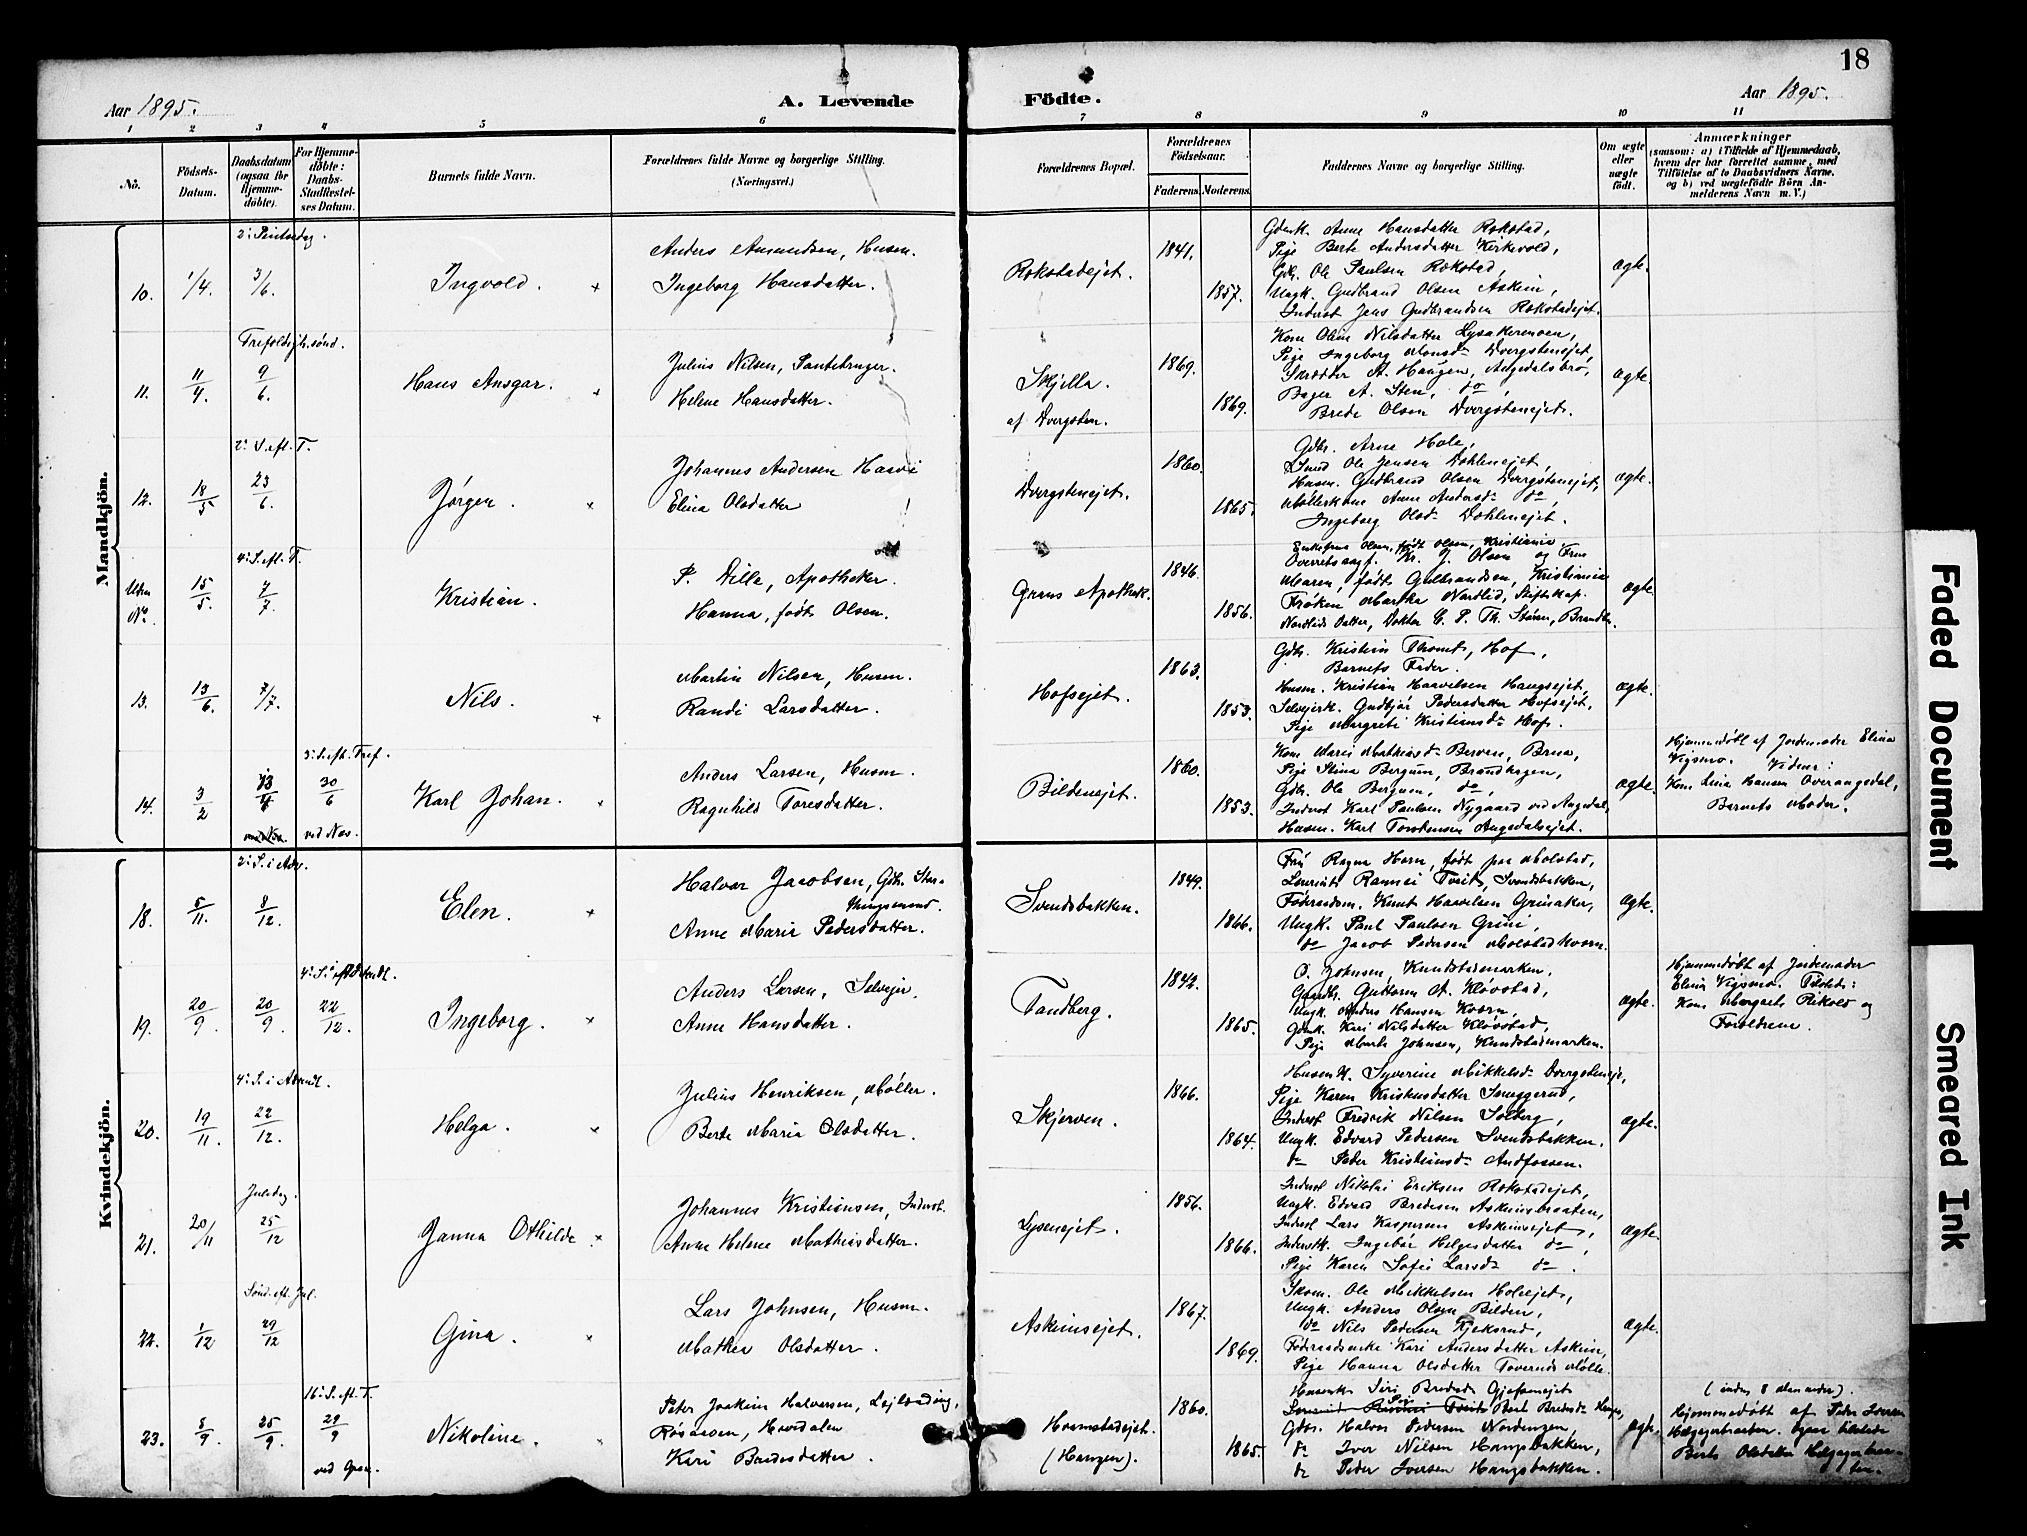 18
Aar 1895.
A. Levende
Födte.
Aar 1895.
1 2 3 4 5 6 7 8 9 10 11
No.
Födsels-Datum.
Daabsdatum (ogsaa for Hjemme-döbte).
For Hjemme-döbte: Daabs-Stadfæstel-ses Datum.
Barnets fulde Navn.
Forældrenes fulde Navne og borgerlige Stilling. (Næringsvei.)
Forældrenes Bopæl.
Forældrenes Födselsaar.
Faderens. Moderens.
Faddernes Navne og borgerlige Stilling.
Om ægte eller uægte födt.
Anmærkninger
(saasom: a) i Tilfælde af Hjemmedaab, hvem der har forrettet samme, med Tilföielse af to Daabsvidners Navne, og b) ved uægtefödte Börn An-melderens Navn m. V.)
Mandkjön.
2. Pintsedag.
10. 1/4. 3/6. Ingvold.
Anders Amundsen, Husm.
Ingeborg Hansdatter.
Rokstadejet. 1841. 1857.
Gdmk. Anne Hansdatter Rokstad,
Pige Berte Andersdatter Kirkevold,
Gbr. Ole Paulsen Rokstad,
Ungk. Gudbrand Olsen Askim,
Inderst Jens Gudbrandsen Rokstadejet.
ægte.
Trefoldigh. sönd.
11. 11/4. 9/6. Hans Ansgar.
Julius Nilsen, Pantebruger.
Helene Hansdatter.
Skjella af Dvergsten. 1869. 1869.
Kone Oline Nilsdatter Lysakermoen,
Pige Ingeborg Monsd. Dvergstenejet,
Skrædder A. Haugen, Augedalsbro,
Bager A. Sten, do,
Brede Olsen Dvergstenejet.
ægte.
2. S. eft. T.
12. 18/5 23/6. Jörgen.
Johannes Andersen Haavi
Elina Olsdatter
Dvergstenejet. 1860. 1865.
Gbr. Arne Hole,
Smed Ole Jensen Dohlenejet,
Husm. Gudbrand Olsen Dvergstenejet,
Möllerkone Anne Andersd. do,
Ingeborg Olsd. Dohlenejet.
ægte.
4. S. eft. T.
Uden No. 15/5. 7/7 Kristian.
P. Dille, Apotheker.
Hanna, födt Olsen.
Grans Apothek. 1846. 1856.
Enkefrue Olsen, födt Olsen, Kristiania,
Overretssagf. Kr. J. Olsen og Frue
Maren, födt Gulbrandsen, Kristiania
Fröken Martha Nordlid, Stiftskap.
Nordlids Datter, Doktor C. P. Th. Stören, Brandbu.
ægte.
13. 13/6. 7/7. Nils.
Martin Nilsen, Husm.
Randi Larsdatter.
Hofsejet. 1863. 1853.
Gbr. Kristian Thomt, Hof,
Barnets Fader.
Husm. Kristian Haavelsen Haugsejet,
Selvejerk. Gudbjör Pedersdatter Hofsejet,
Pige Margrete Kristiansd. Hof.
ægte.
3. S. eft. Tref.
14. 3/2 13/4 30/6 ved Næs. Karl Johan.
Anders Larsen, Husm.
Ragnhild Toresdatter.
Bildenejet. 1860. 1853.
Kone Marie Mathiasd. Berven, Brua,
Pige Stina Bergum, Brandhagen,
Gbr. Ole Bergum, do,
Inderst Karl Paulsen Nygaard ved Augedal,
Husm. Karl Torstensen Augedalsejet.
ægte.
Hjemmedöbt af Jordemoder Elina
Vigsmo. Vidner:
Kone Lina Hansen Overaugedal,
Barnets Moder.
Kvindekjön.
2. S. i Adv.
18. 5/11. 8/12. Elen.
Halvor Jacobsen, Gbr. Stor-
thingsmand.
Anne Marie Pedersdatter.
Svendsbakken. 1849. 1866.
Fru Ragna Horn, födt paa Molstad,
Lærerinde Rannei Tveit, Svendsbakken,
Föderaadsm. Knut Haavelsen Grinaker,
Ungk. Paul Paulsen Grini,
do Jacob Pedersen Molstadkvern.
ægte.
4. S. i Advent.
19. 20/9. 20/9. 22/12. Ingeborg.
Anders Larsen, Selvejer.
Anne Hansdatter.
Tandberg. 1842. 1865.
O. Johnsen, Knudstadmarken,
Gaardbr. Guttorm A. Klovstad,
Ungk. Anders Hansen Kværn,
Gdmk. Kari Nilsdatter Klovstad,
Pige Marte Johnsen, Knudstadmarken.
ægte.
Hjemmedöbt af Jordemoder
Elina Vigsmo. Tilstede:
Kone Margart. Rikold og
Forældrene.
4. S. i Advent.
20. 19/11. 22/12. Helga.
Julius Henriksen, Möller.
Berte Marie Olsdatter.
Skjerven. 1866. 1864.
Husmk. Syverine Mikkelsd. Dvergsteneje,
Pige Karen Kristensdatter Snuggerud,
Inderst Fredrik Nilsen Solberg,
Ungk. Edvard Pedersen Svendsbakken,
do Peder Kristiansd. Andfossen.
ægte.
Juledag.
21. 20/11 25/12 Janna Othilde
Johannes Kristiansen, Inderst.
Anne Helene Mathisdatter.
Lysenejet. 1856. 1866.
Inderst Nikolai Eriksen Rokstadejet,
Ungk. Edvard Bredesen Askimsbraaten,
Inderst Lars Kaspersen Askimsejet,
Inderstk. Ingebör Helgesdatter do,
Pige Karen Sofie Larsd. do.
ægte.
Sönd. eft. Jul.
22. 1/12 29/12 Gina.
Lars Johnsen, Husm.
Mathea Olsdatter.
Askimsejet. 1867. 1869.
Skom. Ole Mikkelsen Holeejet,
Ungk. Anders Olsen Bilden,
do Nils Pedersen Kjeksrud,
Föderaadsenke Kari Andersdatter Askim,
Pige Hanna Olsdatter Toveruds Mölle.
ægte.
16. S. eft. T.
23. 5/9. 25/9. 29/9 ved Gran. Nikoline.
Peter Joakim Halvorsen, Lejlænding,
Rösaasen, Hovdalen
Kari Bredesdatter.
Hvamstadejet. (Haugen). 1860. 1865.
Husmk. Siri Bredesd. Gjefsenejet
Pige Berte Bredesd. Haugen,
Gbr. Halvor Pedersen Nordengen,
do Iver Nilsen Haugsbakken,
do Peder Iversen Haugsbakken.
ægte.
(inden 8 Maaneder).
Hjemmedöbt af Peder Iversen
Helgagerbraaten. Ogsaa tilstede
Berte Olsdatter Helgagerbraa-
ten.
Faded Document
Smeared Ink